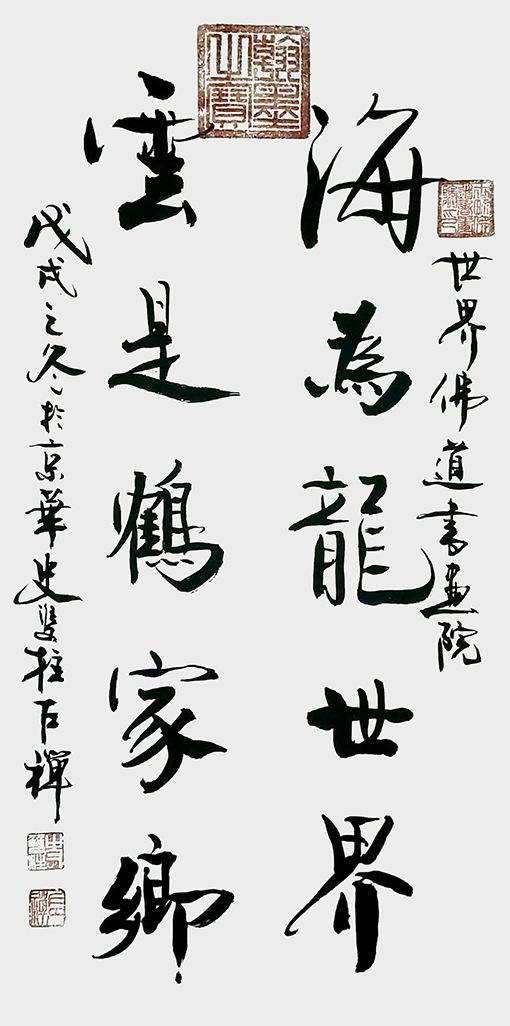 世界佛道書畫院
海為龍世界
翰墨之寶
雲是鶴家鄉
戊戌之冬於京華史雙柱石禪